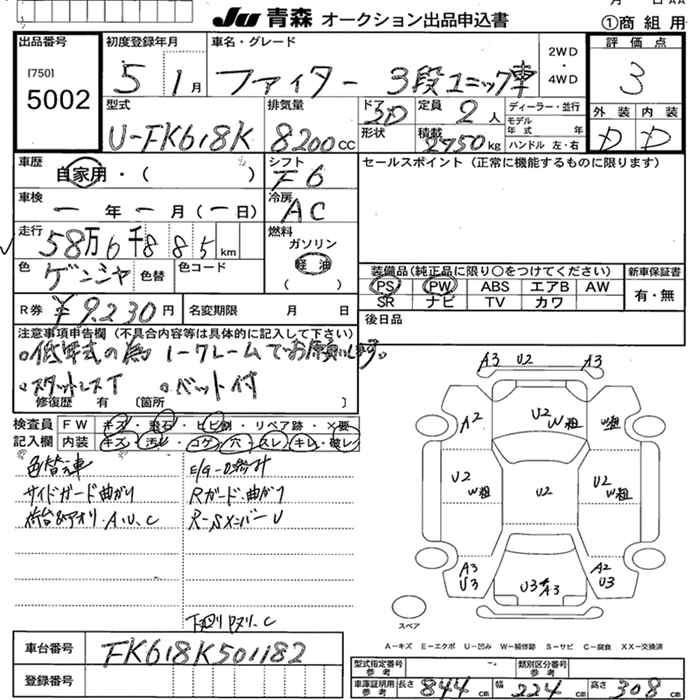 Ju 青森 オークション出品申込書
①商組用
出品番号
[750]
5002
初度登録年月
5 1月
車名・グレード
ファイター 3段ユニック車
2WD
・
4WD
評価点
3
型式
U-FK618K
排気量
8200CC
ドア
3D
形状
定員
2人
積載
2750kg
ディーラー・並行
モデル
年式 年
ハンドル 左・右
外装 内装
D D
車歴
自家用・( )
シフト
F6
セールスポイント(正常に機能するものに限ります)
車検
ー年ー月(ー日)
冷房
AC
走行
58万6千885km
燃料
ガソリン
軽油
( )
色
ゲンシャ
色替
色コード
装備品(純正品に限り○をつけてください)
PS PW ABS エアB AW
SR ナビ TV カワ
新車保証書
有・無
R券 ¥9,230円
名変期限 月 日
後日品
注意事項申告欄(不具合内容等は具体的に記入して下さい)
。低年式の為ノークレームでお願いします。
。スタットレスT 。ベット付
修復歴 有 [箇所 ]
検査員
記入欄
FW キズ・飛石・ヒビ割・リペア跡・×要
内装 キズ・汚レ・コゲ・穴・スレ・キレ・破レ
色替え車
サイドガード曲がり
荷台&アオリ・A,U,C
Rガード・曲がり
R-Sメンバー U
A3 U2 A3
A2 U2 W粗 W粗
U2 W粗 U2 U2 W粗
A3 U3 U3 A3 A2 U3
スペア
A－キズ E－エクボ U－凹み W－補修跡 S－サビ C－腐食 XX－交換済
車台番号 FK618K501182
登録番号
型式指定番号
参考
類別区分番号
参考
車庫証明用
参考
長さ 844cm 幅 224cm 高さ 308cm